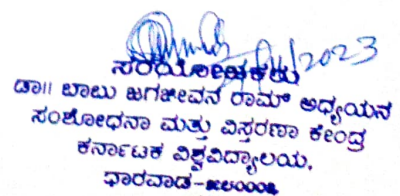 2023
ಸಂಯೋಜಕರು
ಡಾ|| ಬಾಬು ಜಗಜೀವನ ರಾಮ್ ಅಧ್ಯಯನ
ಸಂಶೋಧನಾ ಮತ್ತು ವಿಸ್ತರಣಾ ಕೇಂದ್ರ
ಕರ್ನಾಟಕ ವಿಶ್ವವಿದ್ಯಾಲಯ,
ಧಾರವಾಡ-೫೮೦೦೦೩